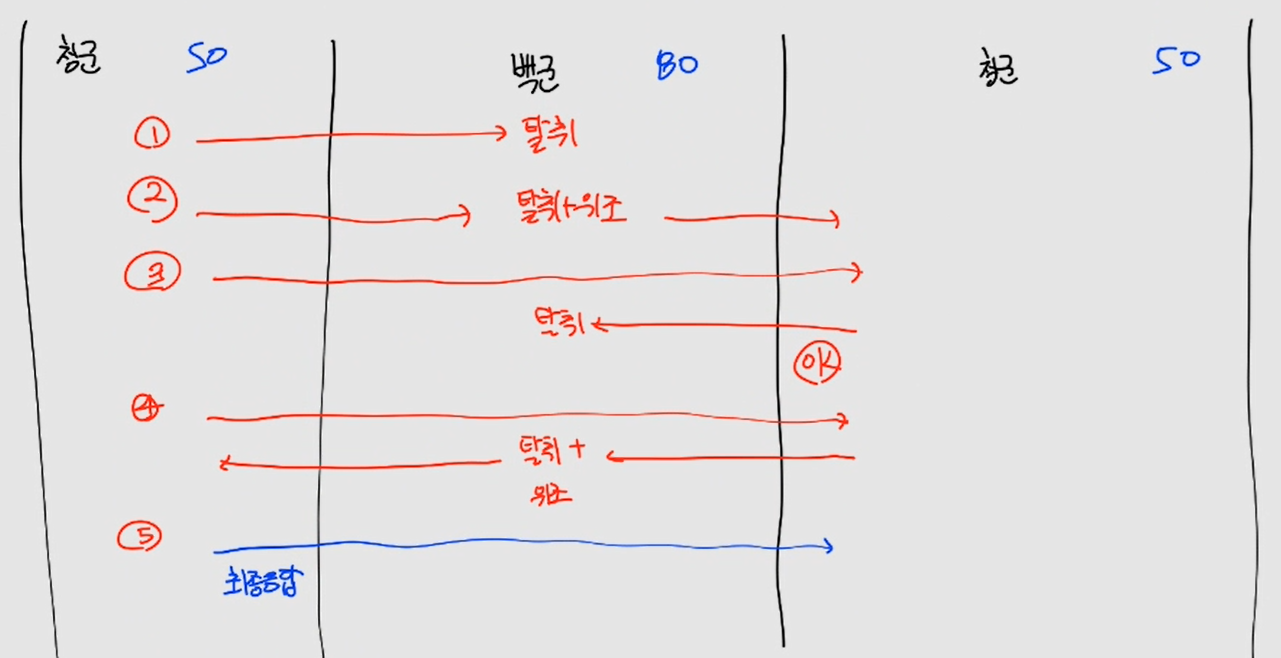 청군 50 백군 80 청군 50
① 탈취
② 탈취+위조
③
탈취
OK
④
탈취+
위조
⑤
최종응답